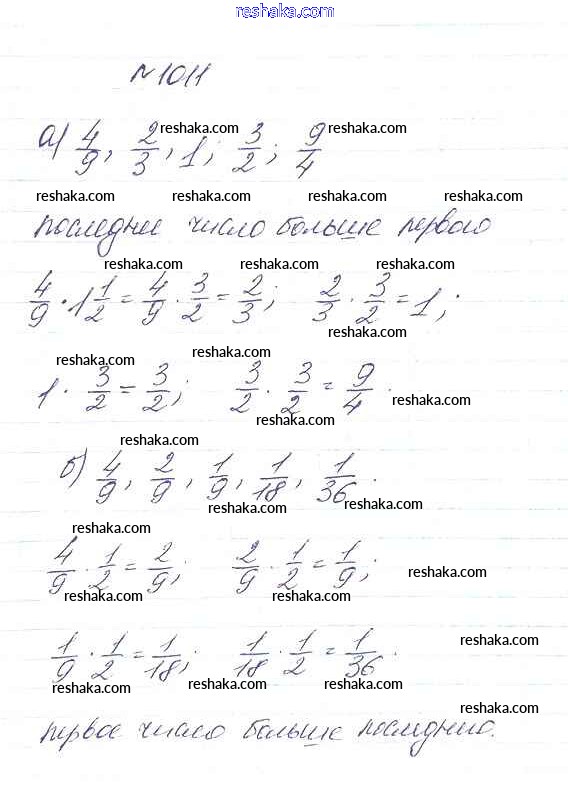 reshaka.com
№1011
а) 4/9, 2/3, 1; 3/2; 9/4
reshaka.com reshaka.com
reshaka.com reshaka.com reshaka.com reshaka.com
последнее число больше первого
reshaka.com reshaka.com reshaka.com
4/9 · 1 1/2 = 4/9 · 3/2 = 2/3; 2/3 · 3/2 = 1;
reshaka.com
reshaka.com reshaka.com
1 · 3/2 = 3/2; 3/2 · 3/2 = 9/4.
reshaka.com
reshaka.com
reshaka.com
б) 4/9, 2/9, 1/9, 1/18, 1/36.
reshaka.com reshaka.com
reshaka.com
4/9 · 1/2 = 2/9; 2/9 · 1/2 = 1/9;
reshaka.com
reshaka.com reshaka.com
1/9 · 1/2 = 1/18; 1/18 · 1/2 = 1/36.
reshaka.com
reshaka.com reshaka.com reshaka.com
reshaka.com
первое число больше последнего.